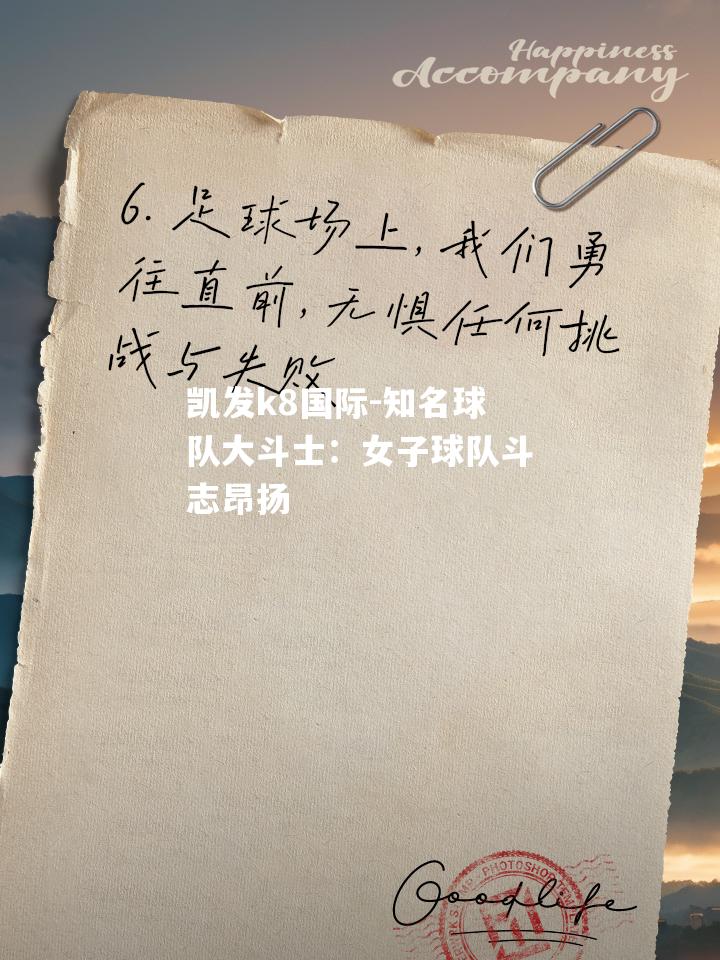 Happiness
Accompany
6. 足球场上，我们勇
往直前，无惧任何挑
战与失败
凯发k8国际-知名球
队大斗士：女子球队斗
志昂扬
PHOTOSHOP
Goodlife